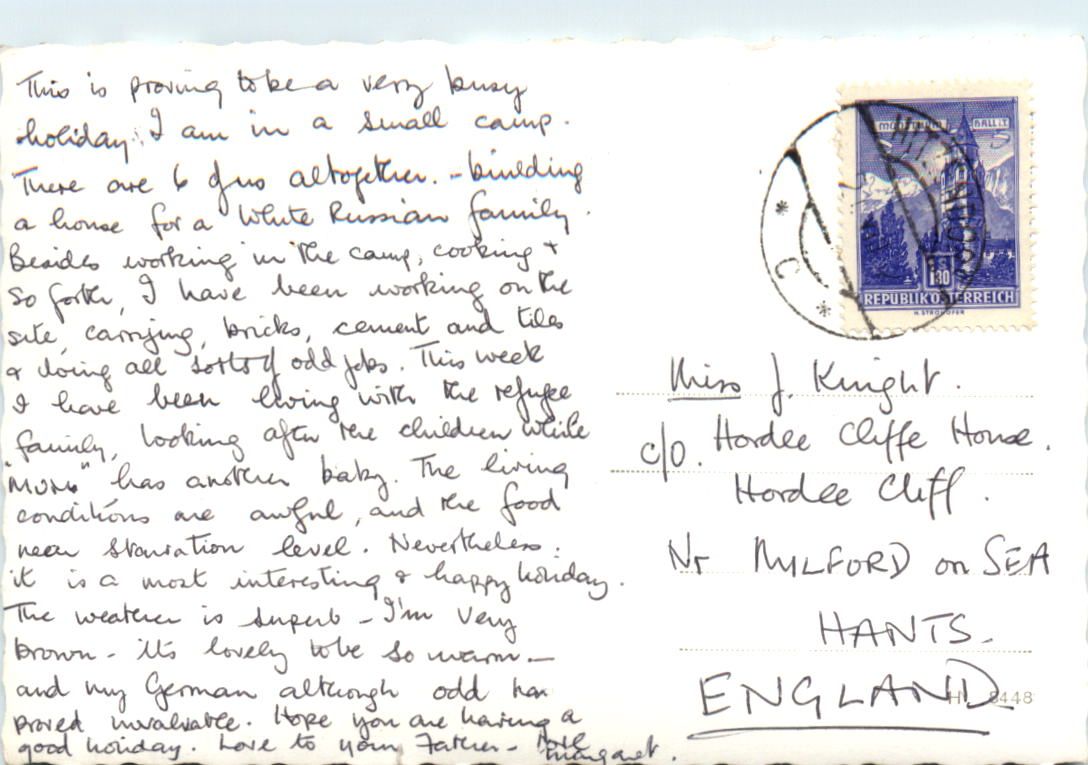 This is proving to be a very busy
holiday. I am in a small camp.
There are 6 of us altogether. - building
a house for a White Russian family.
Besides working in the camp, cooking +
so forth, I have been working on the
site, carrying, bricks, cement and tiles
& doing all sorts of odd jobs. This week
I have been living with the refugee
family, looking after the children while
"MUM" has another baby. The living
conditions are awful, and the food
near starvation level. Nevertheless
it is a most interesting & happy holiday.
The weather is superb - I'm very
brown - it's lovely to be so warm -
and my German although odd has
proved invaluable. Hope you are having a
good holiday. Love to your Father -
Love
Margaret.
S 1.80
REPUBLIK ÖSTERREICH
H. STROHOFER
C
Miss J. Knight.
c/o. Hordle Cliffe House.
Hordle Cliff.
Nr MILFORD on SEA
HANTS.
ENGLAND
8448